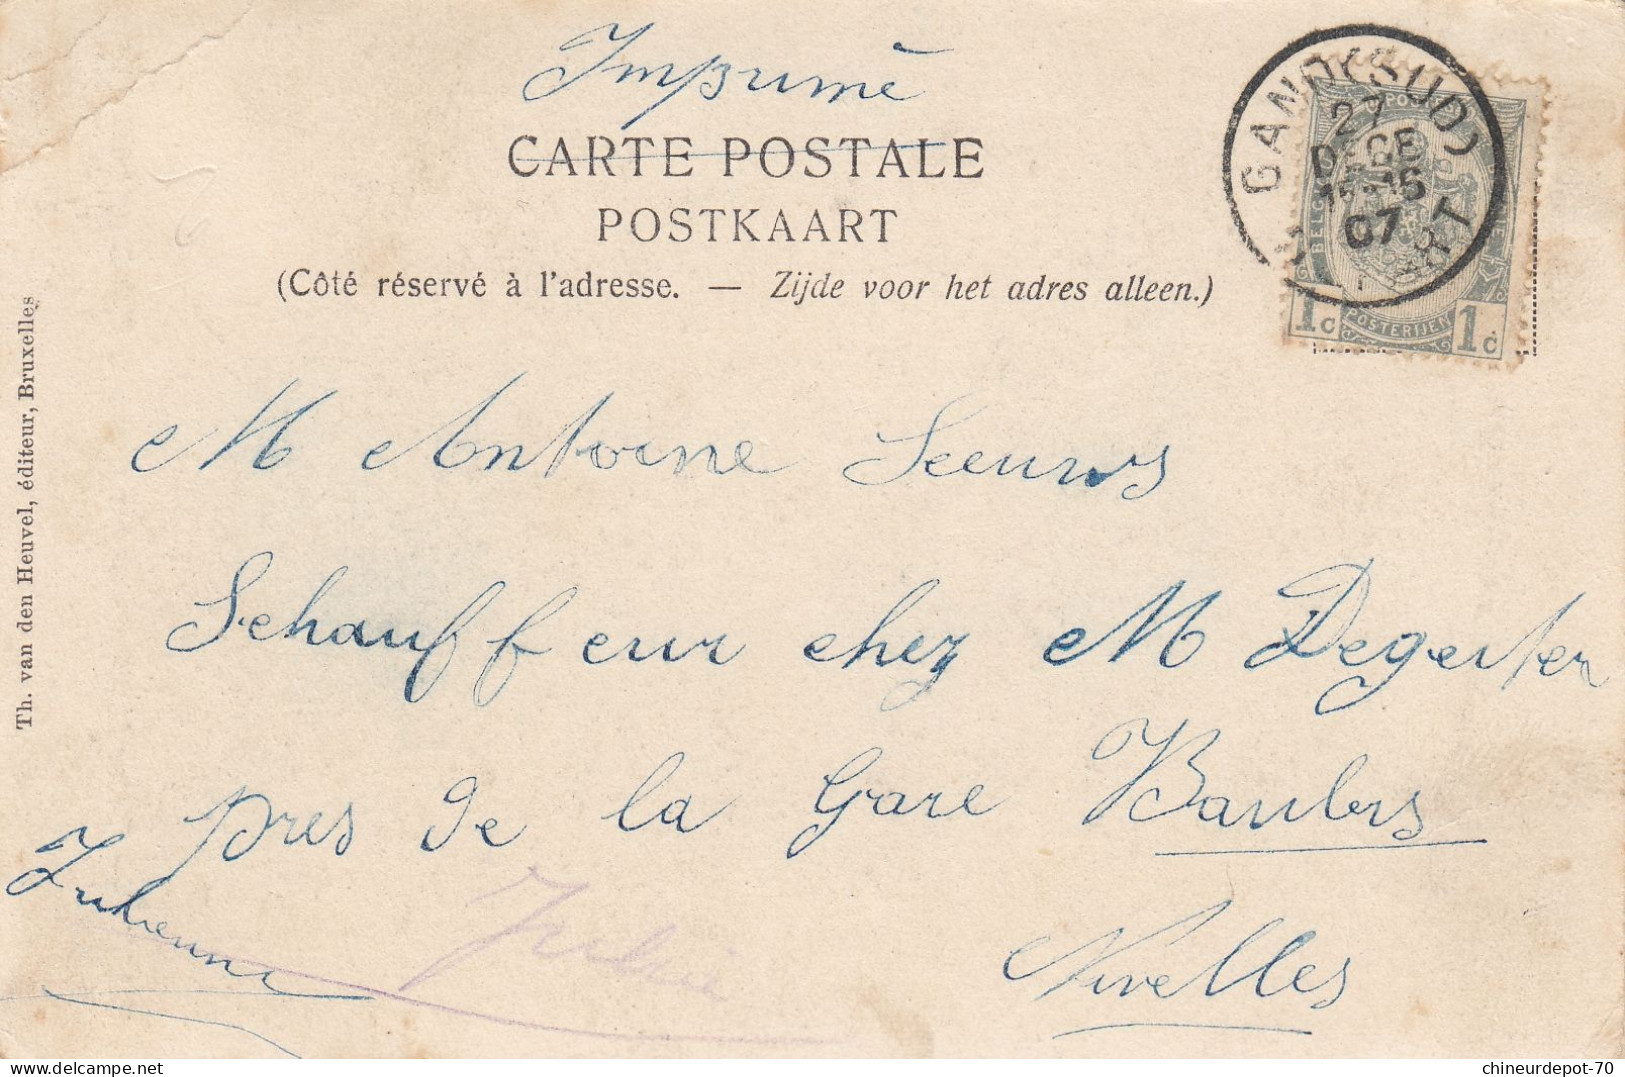 Imprimé
CARTE POSTALE
POSTKAART
(Côté réservé à l'adresse. — Zijde voor het adres alleen.)
GAND (SUD)
27
DECE
15-16
07
1c POSTERIJEN 1c
M Antoine Seeuws
Schauffeur chez M Degerter
pres de la Gare Baulers
Nivelles
Julienne
Th. van den Heuvel, éditeur, Bruxelles
chineurdepot-70